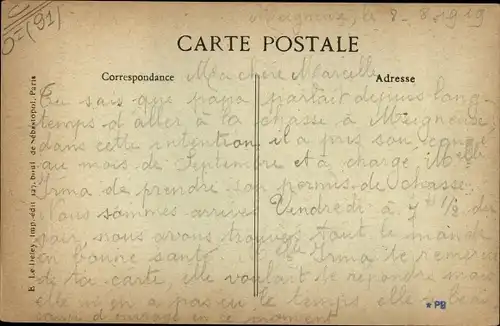 Meigneux, le 8-8-1919
O=(91)
CARTE POSTALE
Correspondance
Adresse
E. Le Deley, imp.-édit. 127, boul. de Sébastopol, Paris
Ma chère Marcelle
Tu sais que papa parlait depuis long-
temps d'aller à la chasse à Meigneux
dans cette intention il a pris son congé
au mois de Septembre et a chargé Melle
Irma de prendre son permis de chasse.
Nous sommes arrivés Vendredi à 7h 1/2 du
soir, nous avons trouvé tout le monde
en bonne santé. Melle Irma te remercie
de ta carte, elle voulait te répondre mais
elle n'en a pas eu le temps, elle a
d'ouvrage en ce moment
*PB